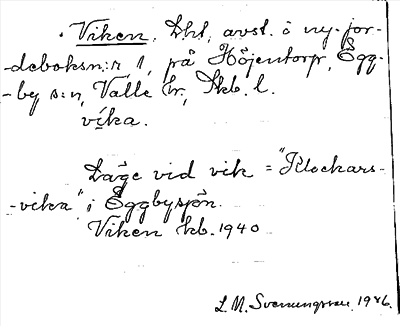 Viken. Lht, avst. å ny-jor-
-deboksn:r 1, på Höjentorp, Egg-
-by s:n, Valle hr, Skb. l.
víka.
Läge vid vik = "Klockars-
-vika" i Eggbysjön.
Viken kb. 1940
L. M. Svenungsson, 1946.